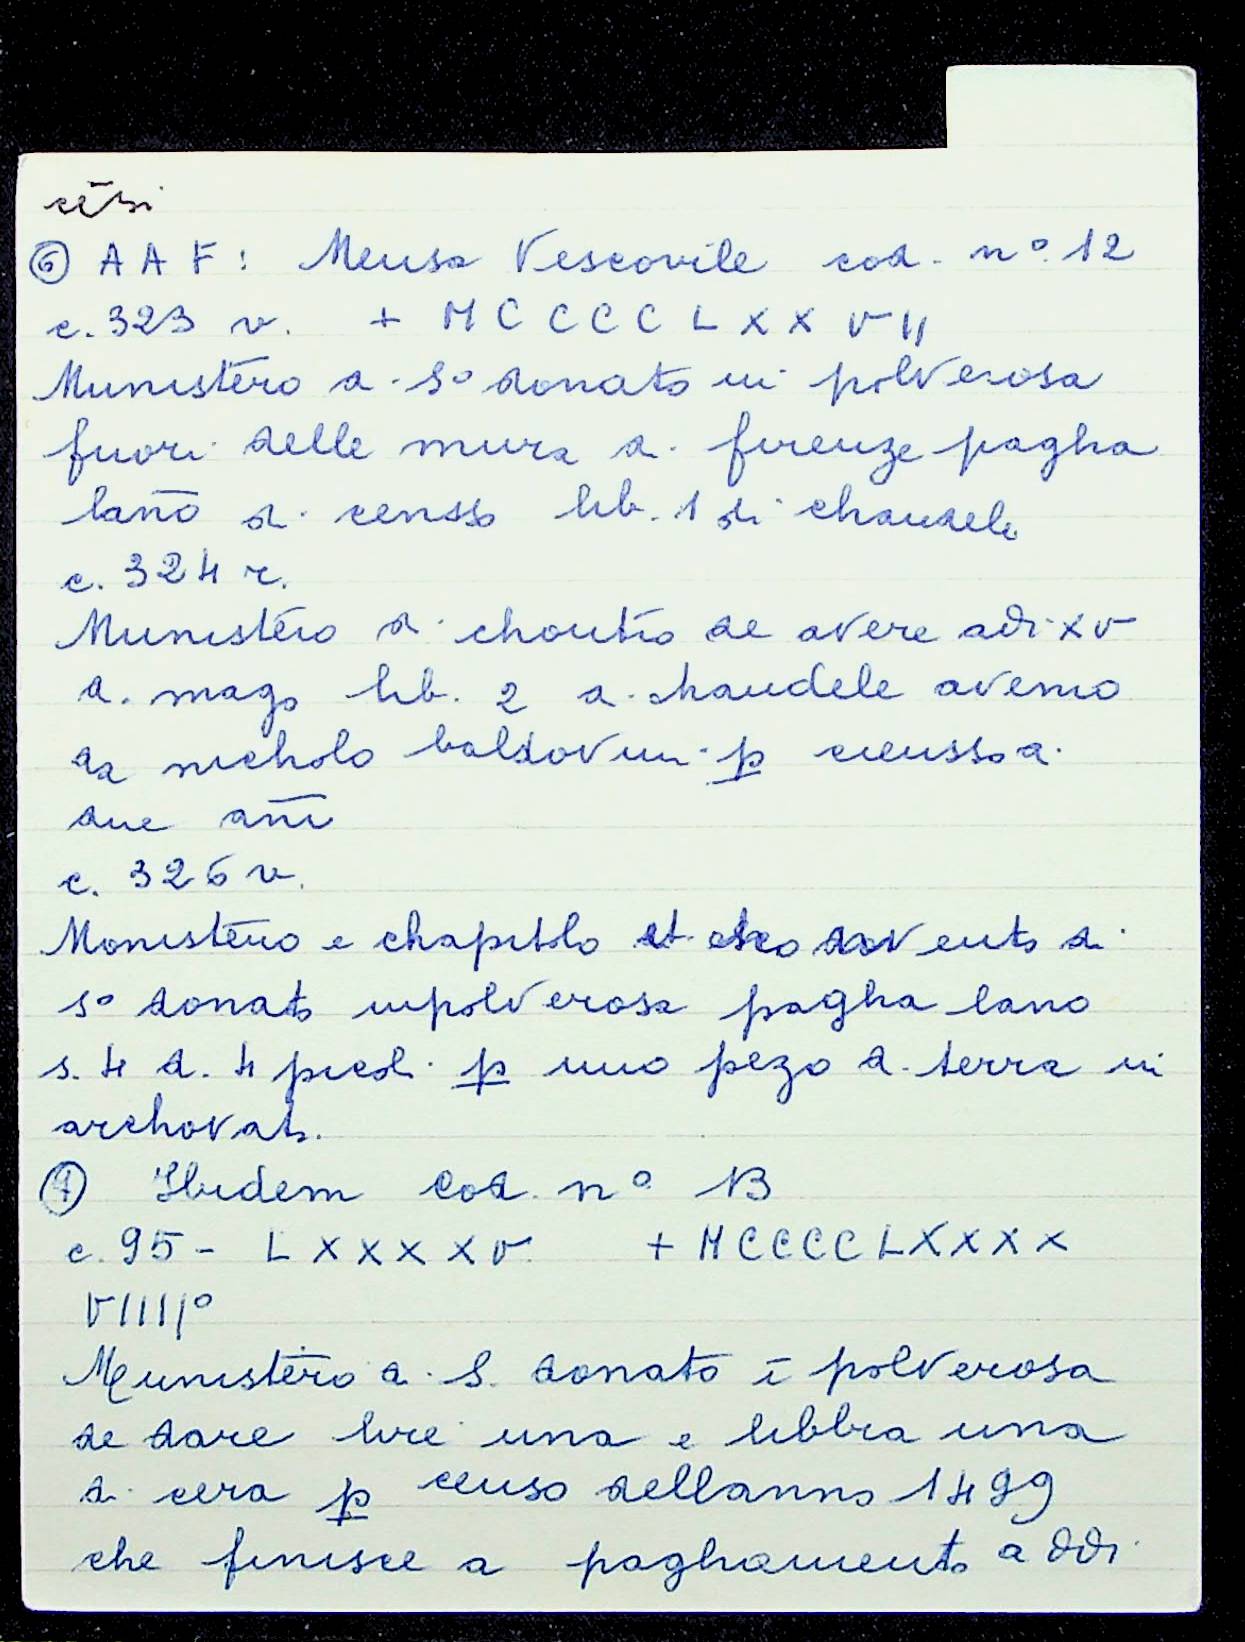 cēsi
⑥ A A F: Mensa Vescovile cod. n°. 12
c. 323 v. + M C C C C L X X V II
Munistēro di S° donato in polverosa
fuori delle mura di firenze pagha
lanō di censso lib. 1 di chandele
c. 324 r.
Munistēro di chontro de avere adi XV
di mago lib. 2 di chandele avemo
da nicholo baldovini p
due anī
c. 326 v.
Monistēro e chapitolo et chovento di
S° donato inpolverosa pagha lano
s. 4 d. 4 picoli p uno pezo di terra in
archovato.
⑦ Ibidem Cod. n° 13
c. 95 - L X X X X V. + M C C C C L X X X X
V I I I I °
Munistēro di S. donato ī polverosa
de dare lire una e libbra una
di cera p censo dellanno 1499
che finisce a paghamento addi